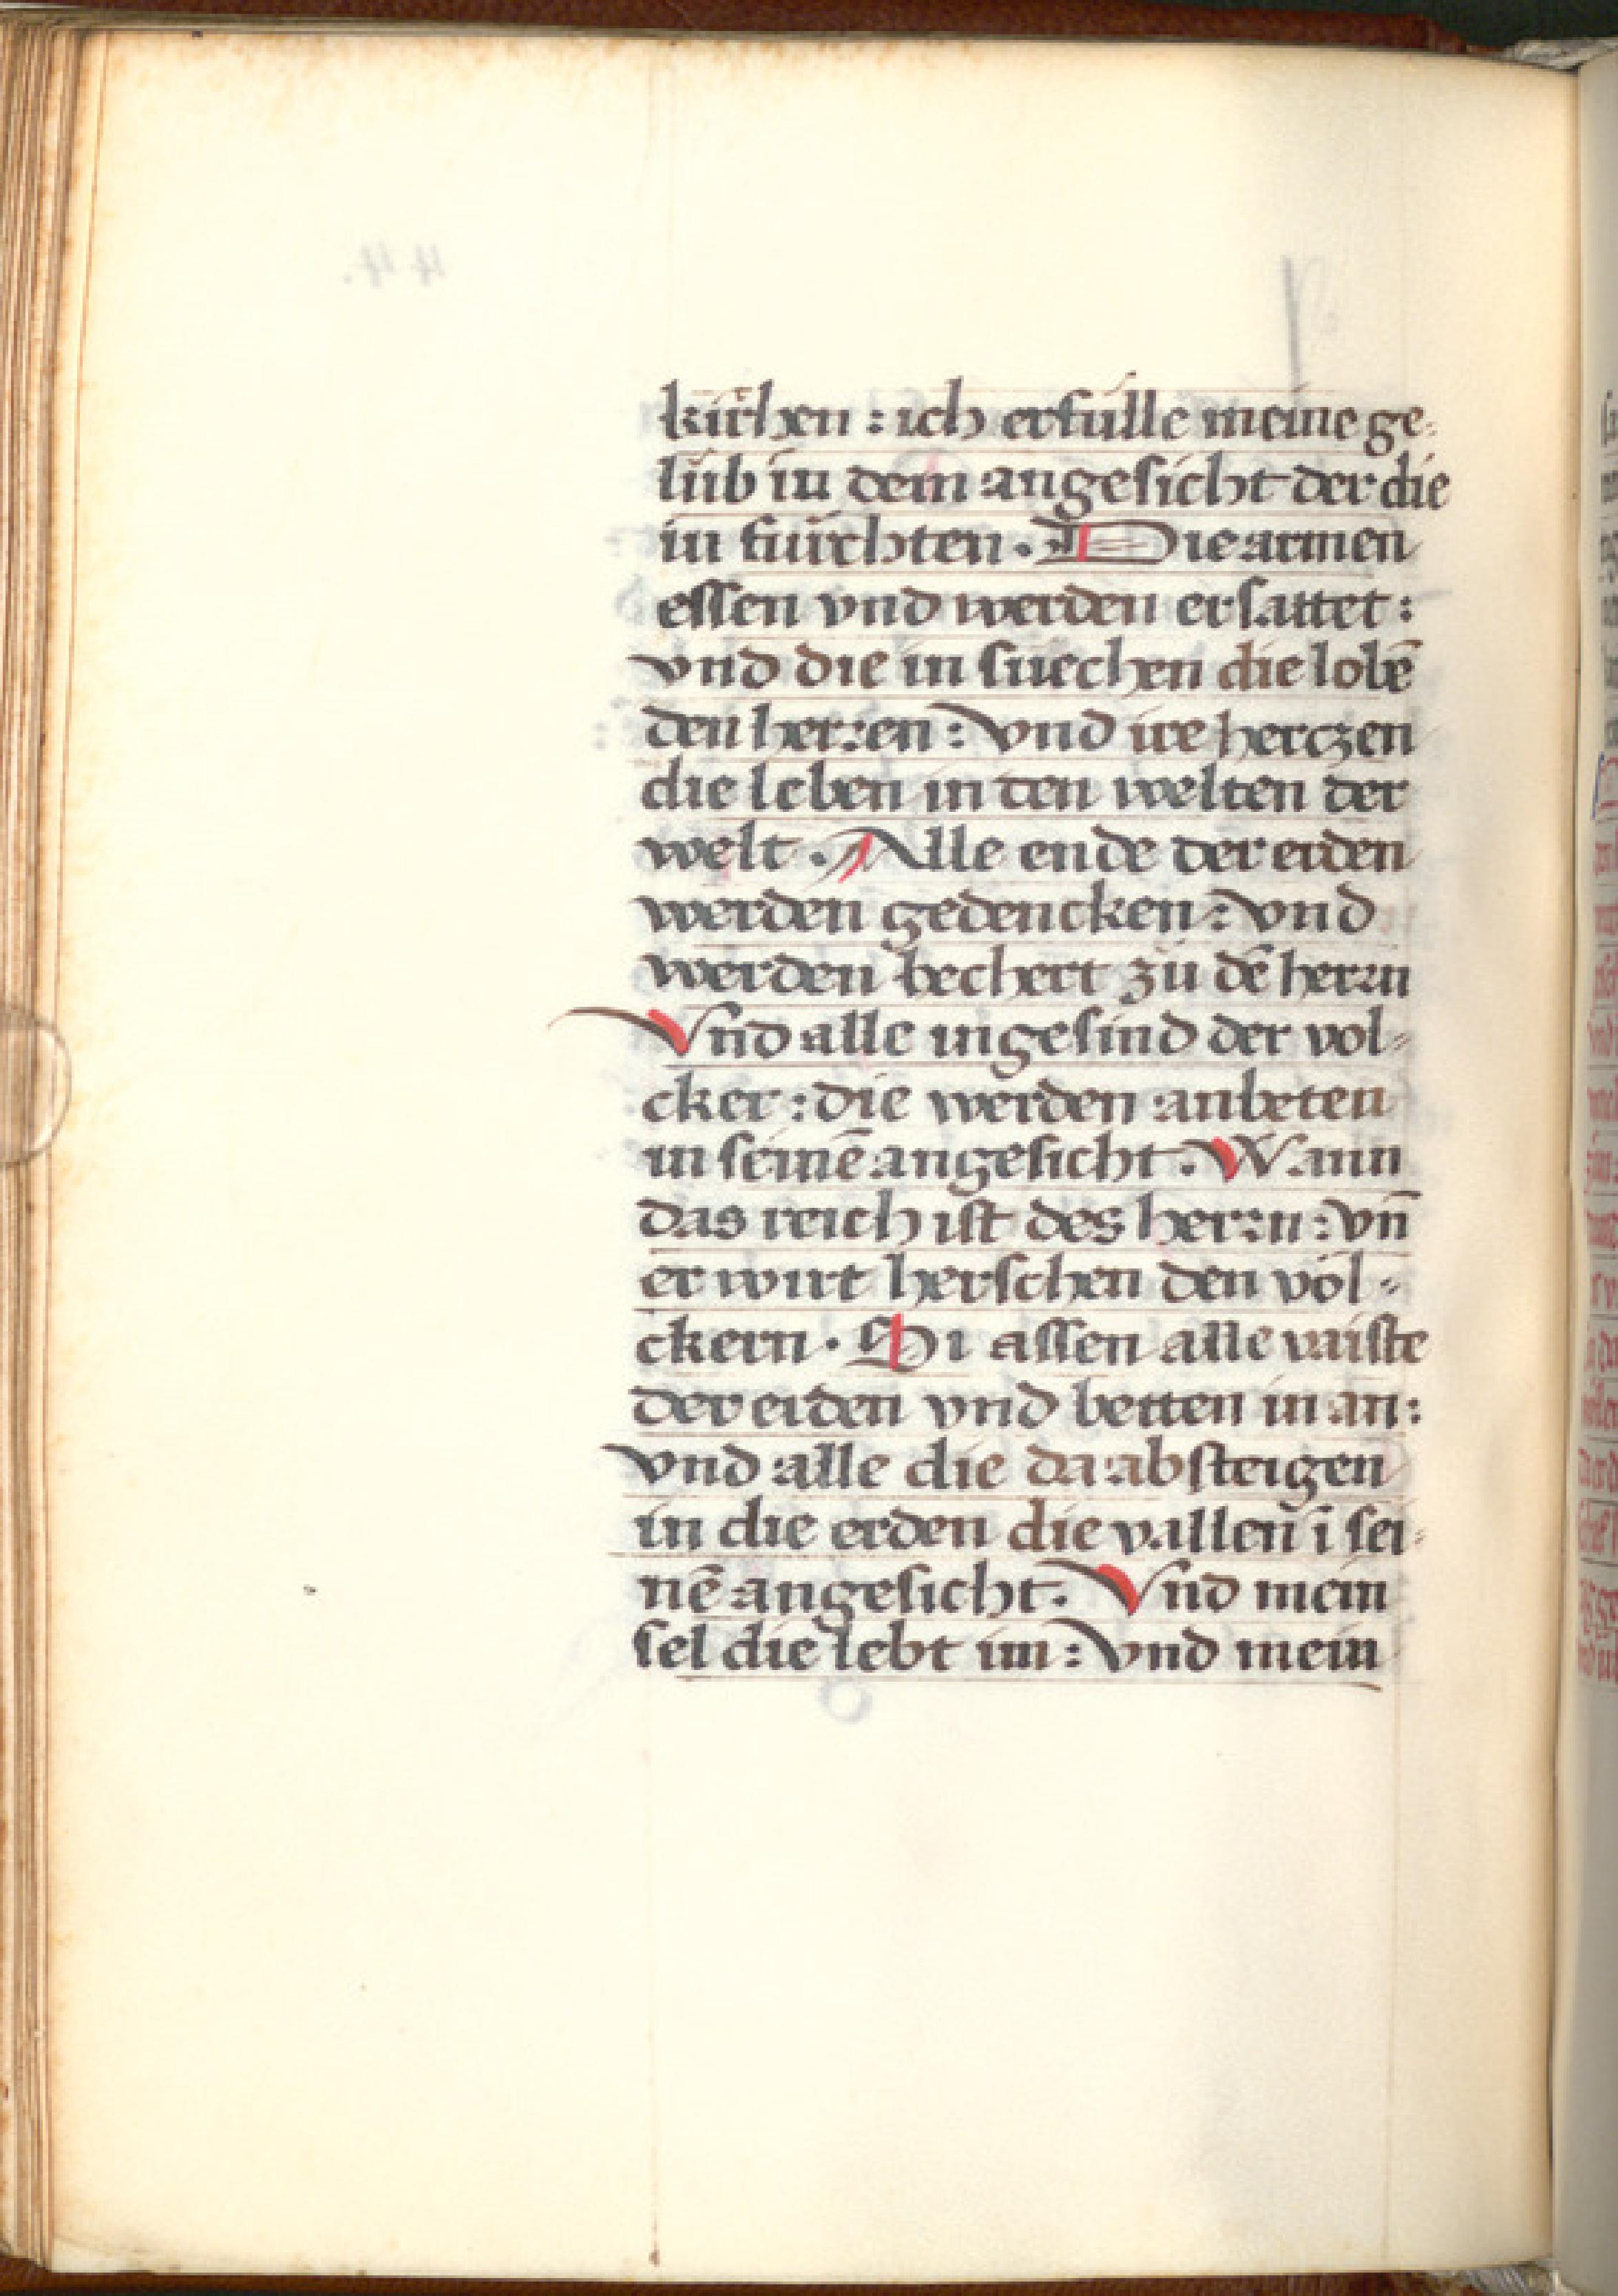 kirchen : ich erfulle meine ge⸗
lüb in dem angesicht der die
in furchten . Die armen
essen vnd werden ersattet :
vnd die in suechen die lobē
den herren : vnd ire herczen
die leben in den welten der
welt . Alle ende der erden
werden gedencken : vnd
werden bechert zů dē herrn
Vnd alle ingesind der vol⸗
cker : die werden anbeten
in seinē angesicht . Wann
das reich ist des herrn : vn̄
er wirt herschen den völ⸗
ckern . Si assen alle vaiste
der erden vnd betten in an :
vnd alle die da absteigen
in die erden die vallen ī sei⸗
nē angesicht . Vnd mein
sel die lebt im : vnd mein